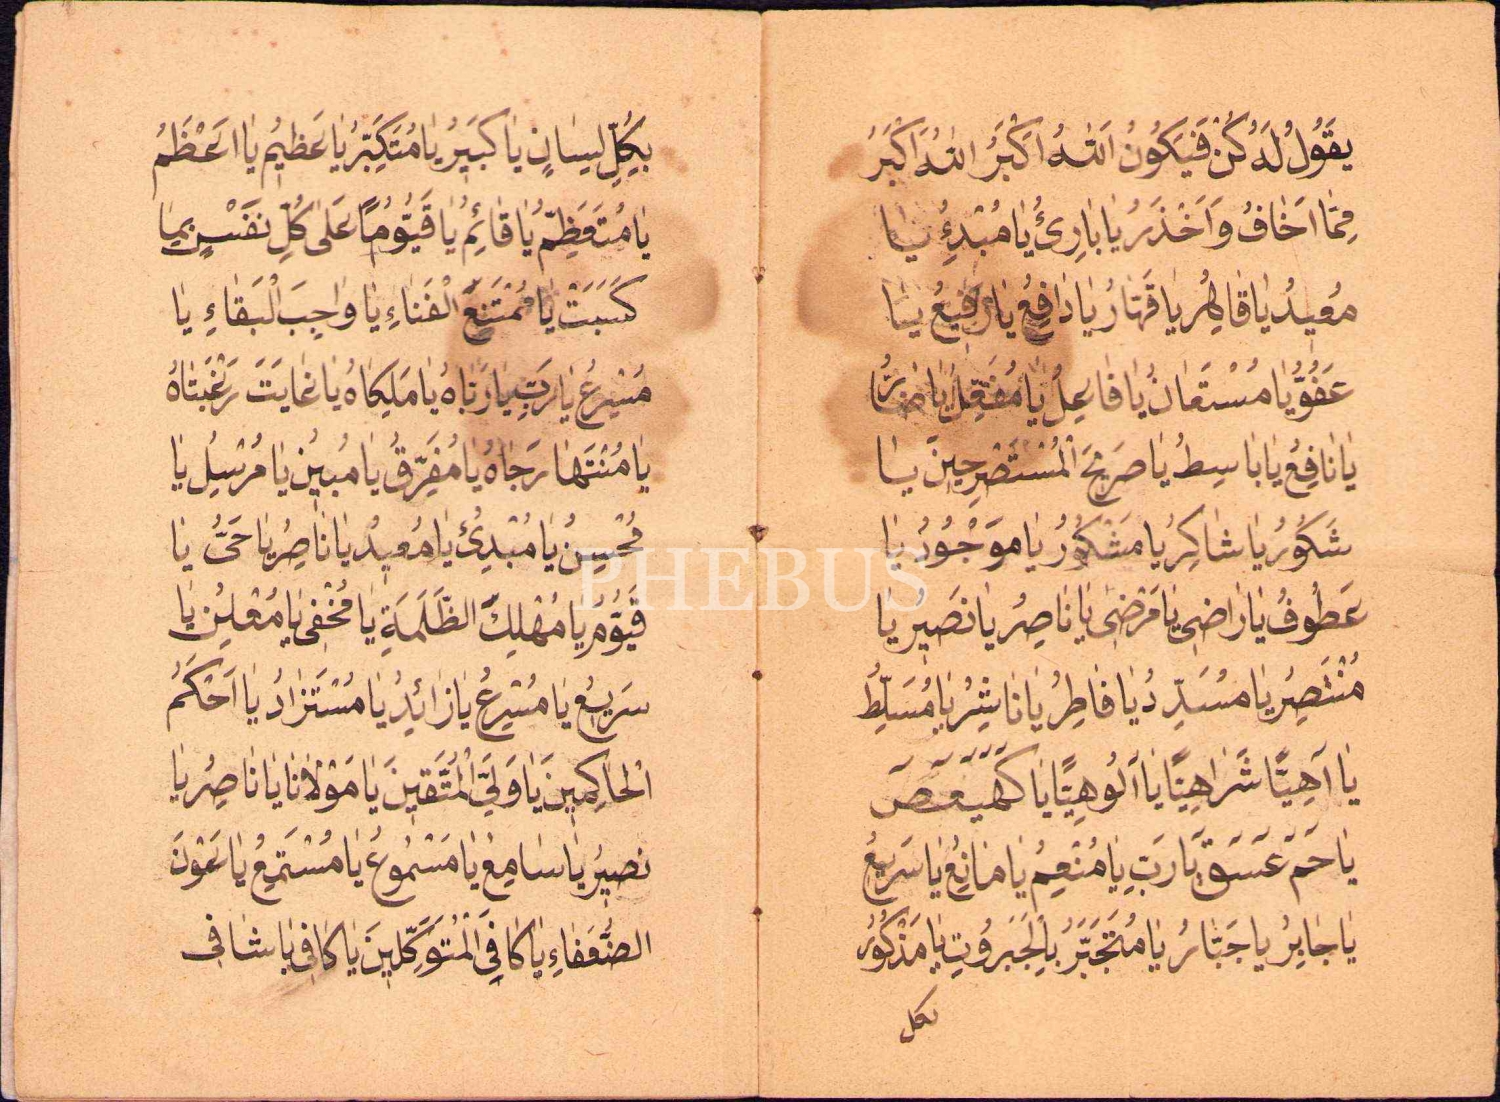 يَقُولُ لَهُ كُنْ فَيَكُونُ اَللّٰهُ اَكْبَرُ اَللّٰهُ اَكْبَرُ
مِمَّا اَخَافُ وَاَحْذَرُ يَا بَارِئُ يَا مُبْدِءُ يَا
مُعِيدُ يَا قَاهِرُ يَا قَهَّارُ يَا دَافِعُ يَا رَفِيعُ يَا
عَفُوُّ يَا مُسْتَعَانُ يَا فَاعِلُ يَا مُفَعِّلُ يَا ضَارُّ
يَا نَافِعُ يَا بَاسِطُ يَا صَرِيخَ الْمُسْتَصْرِخِينَ يَا
شَكُورُ يَا شَاكِرُ يَا مَشْكُورُ يَا مَوْجُودُ يَا
عَطُوفُ يَا رَاضِى يَا مَرْضِىُ يَا نَاصِرُ يَا نَصِيرُ يَا
مُنْتَصِرُ يَا مُسَدِّدُ يَا فَاطِرُ يَا نَاشِرُ يَا مُسَلِّطُ
يَا آهِيًّا شَرَاهِيًّا يَا اَلُوهِيًّا يَا كٓهٰيٰعٓصٓ
يَا حٓمٓ عٓسٓقٓ يَا رَبِّ يَا مُنْعِمُ يَا مَانِعُ يَا سَرِيعُ
يَا جَابِرُ يَا جَبَّارُ يَا مُتَجَبِّرُ بِالْجَبَرُوتِ يَا مَذْكُورُ
بكل
بِكُلِّ لِسَانٍ يَا كَبِيرُ يَا مُتَكَبِّرُ يَا عَظِيمُ يَا اَعْظَمُ
يَا مُتَعَظِّمُ يَا قَائِمُ يَا قَيُّومًا عَلٰى كُلِّ نَفْسٍ بِمَا
كَسَبَتْ يَا مُمْتَنِعَ الْفَنَاءِ يَا وَاجِبَ الْبَقَاءِ يَا
مُسْرِعُ يَا رَبِّ يَا رَبَّاهُ يَا مَلِيكَاهُ يَا غَايَتَ رَغْبَتَاهُ
يَا مُنْتَهَا رَجَاهُ يَا مُفَرِّقُ يَا مُبِينُ يَا مُرْسِلُ يَا
مُحْسِنُ يَا مُبْدِئُ يَا مُعِيدُ يَا نَاصِرُ يَا حَىُّ يَا
قَيُّومُ يَا مُهْلِكَ الظَّلَمَةِ يَا مُخْفِى يَا مُعْلِنُ يَا
سَرِيعُ يَا مُسْرِعُ يَا زَائِدُ يَا مُسْتَزَادُ يَا اَحْكَمُ
الْحَاكِمِينَ يَا وَلِىَّ الْمُتَّقِينَ يَا مَوْلَانَا يَا نَاصِرُ يَا
نَصِيرُ يَا سَامِعُ يَا مَسْمُوعُ يَا مُسْتَمِعُ يَا عَوْنَ
الضُّعَفَاءِ يَا كَافِىَ الْمُتَوَكِّلِينَ يَا كَافِى يَا شَافِى
PHEBUS